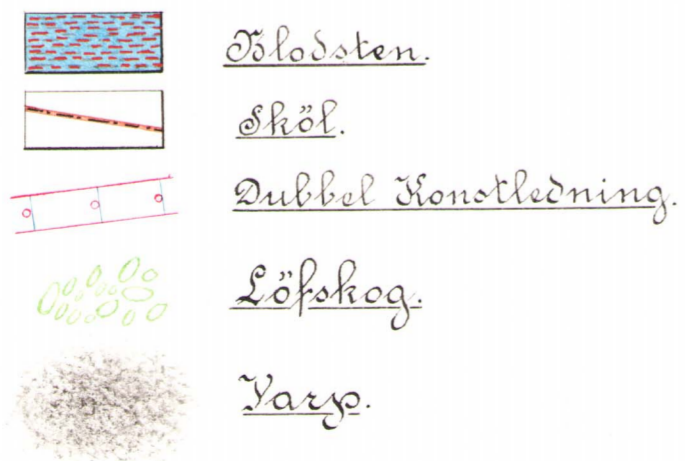 Blodsten.
Sköl.
Dubbel Konstledning.
Löfskog.
Varp.